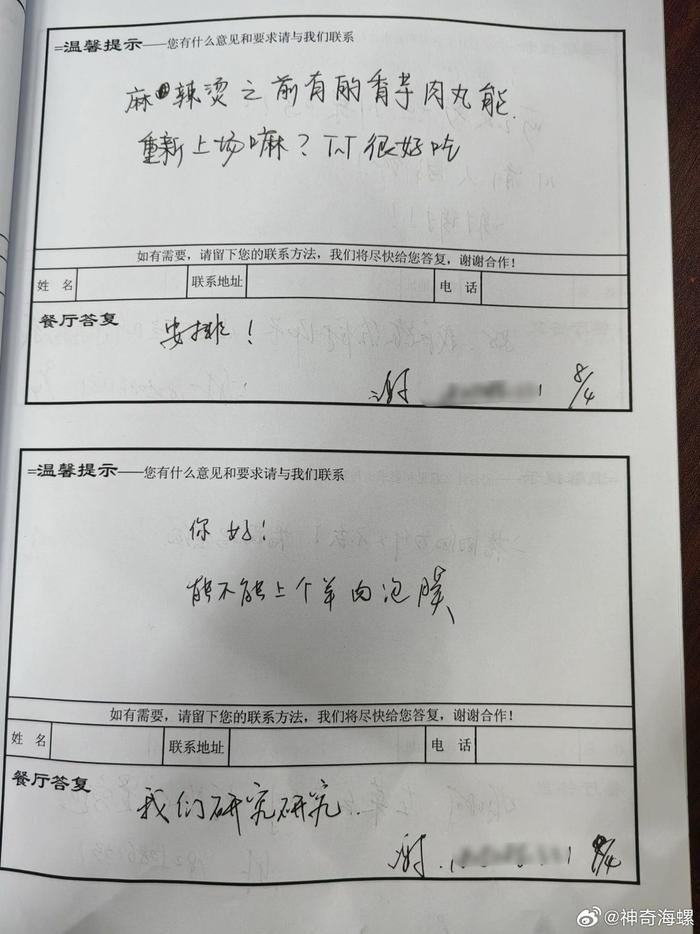 =温馨提示——您有什么意见和要求请与我们联系
麻辣烫之前有的香芋肉丸能
重新上场嘛？TvT 很好吃
如有需要，请留下您的联系方法，我们将尽快给您答复，谢谢合作！
姓 名 联系地址 电 话
餐厅答复
安排！
谢 8/4
=温馨提示——您有什么意见和要求请与我们联系
你好！
能不能上个羊肉泡膜
如有需要，请留下您的联系方法，我们将尽快给您答复，谢谢合作！
姓 名 联系地址 电 话
餐厅答复
我们研究研究.
谢 8/4
@神奇海螺